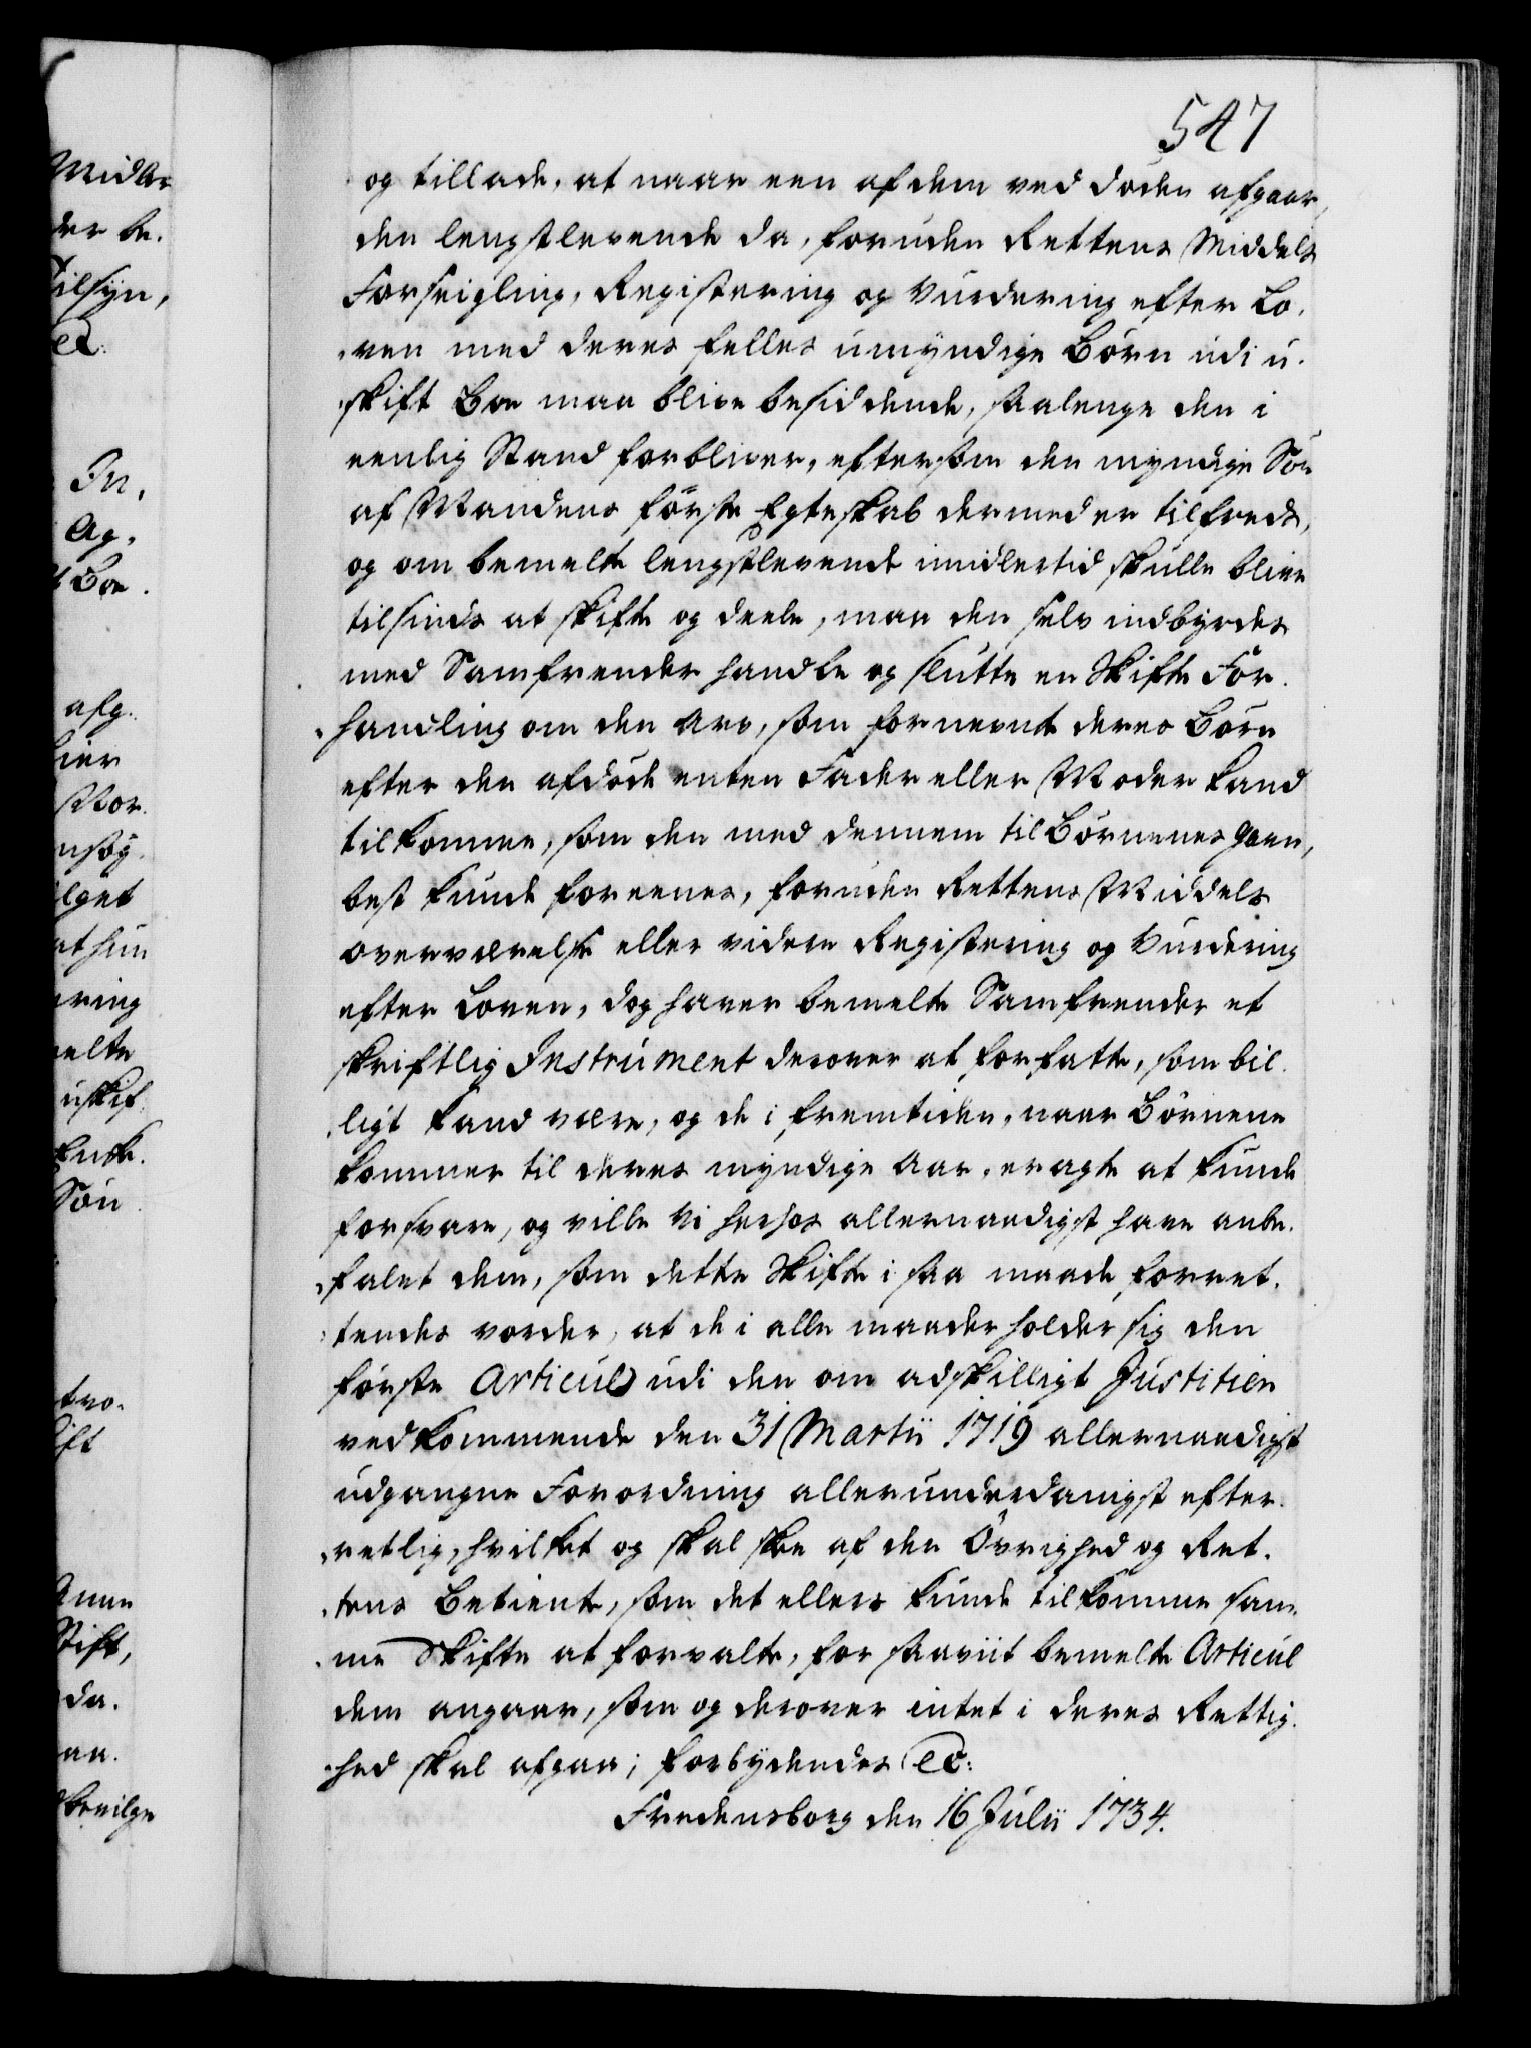 547
og tillade, at naar een af dem ved döden afgaar,
den lengstlevende da, foruden Rettens Middels
Forseigling, Registering og Vurdering efter Lo-
ven med deres felles umyndige Börn udi u-
skift Boe maa blive besiddende, saalenge den i
eenlig Stand forbliver, eftersom den myndige Sön
af Mandens förste Egteskab dermed er tilfreds,
og om bemelte lengstlevende imidlertid skulle blive
tilsinds at skifte og deele, maa den selv indbyrdes
med Samfrender handle og slutte en Skifte For-
handling om den Arv, som fornevnte deres Börn
efter den afdöde enten Fader eller Moder kand
tilkomme, som den med dennem til Börnenes gavn,
best kunde foreenes, foruden Rettens Middels
overværelse eller videre Registering og Vurdering
efter Loven, dog haver bemelte Samfrender et
skriftlig Instrument derover at forfatte, som bil-
ligt kand være, og de i fremtiden, naar Börnene
kommer til deres myndige Aar, eragte at kunde
forsvare, og ville Vi herhos allernaadigst have anbe-
falet dem, som dette Skifte i saa maade forret-
tendes vorder, at de i alle maader holder sig den
förste Articul udi den om adskilligt Justitien
vedkommende den 31 Martii 1719 allernaadigst
udgangne Forordning allerunderdanigst efter-
retlig, hvilket og skal skee af den Övrighed og Ret-
tens Betiente, som det ellers kunde tilkomme sam-
me Skifte at forvalte, for saaviit bemelte Articul
dem angaar, som og derover intet i deres Rettig-
hed skal afgaa; forbydendes etc:
Fredensborg den 16 Julii 1734.